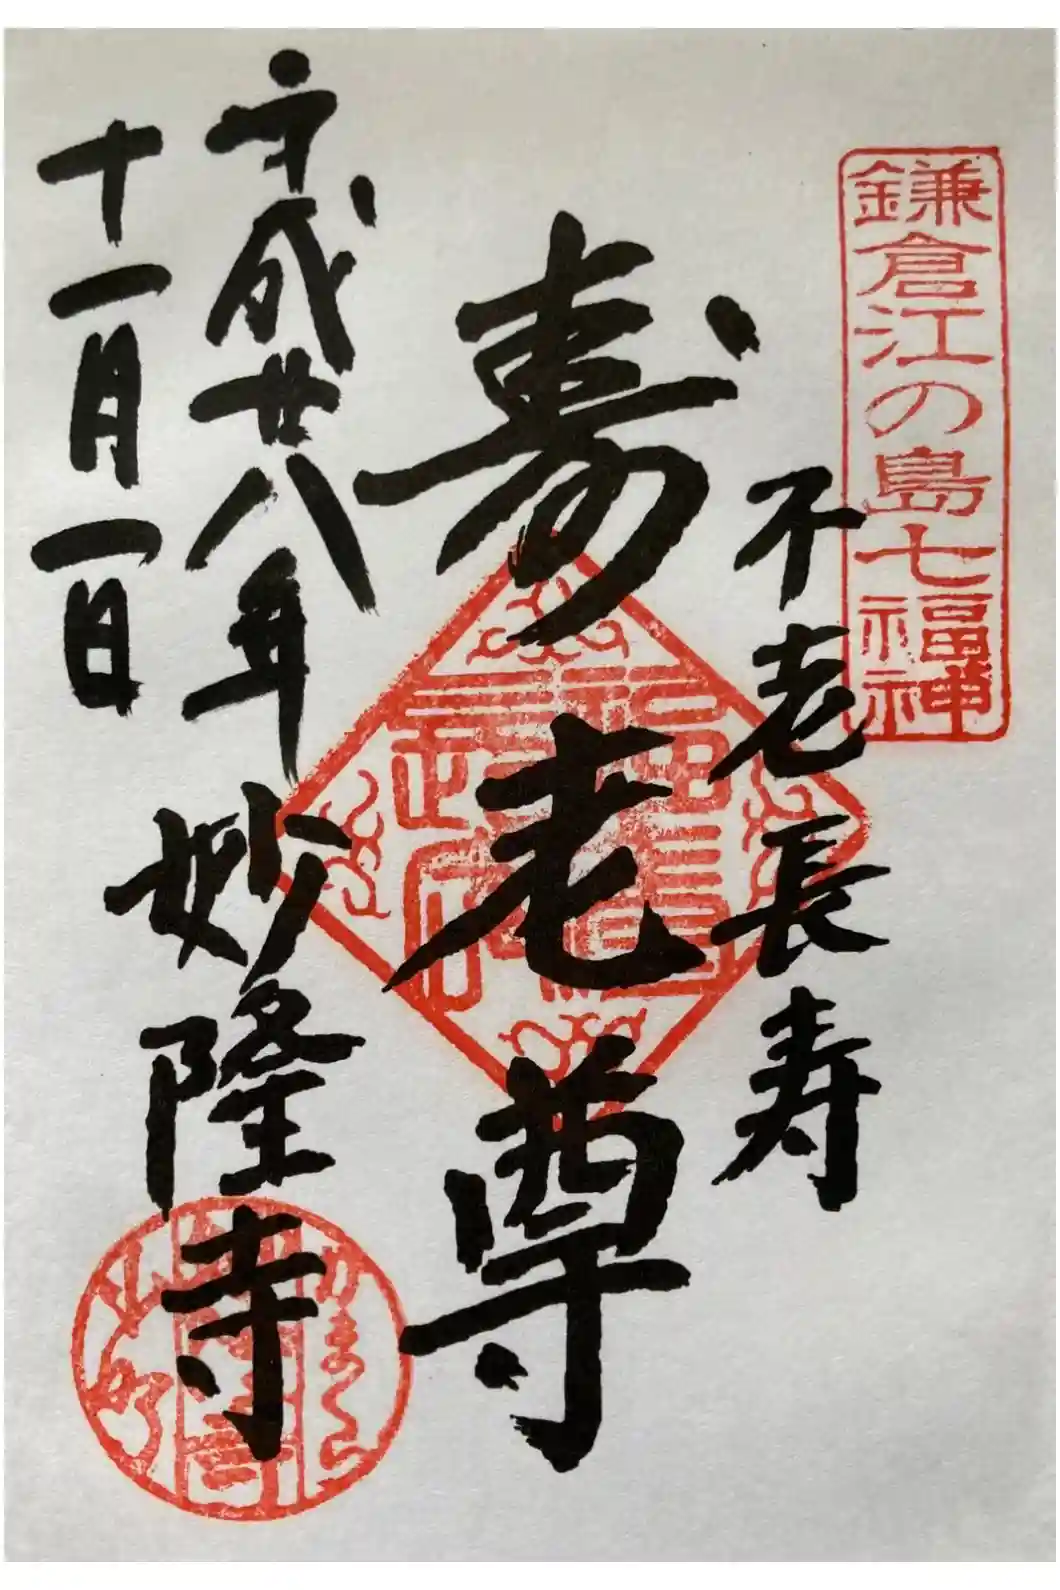 鎌倉江の島七福神
不老長寿
寿老尊
平成廿八年
十一月一日
妙隆寺
かまくら